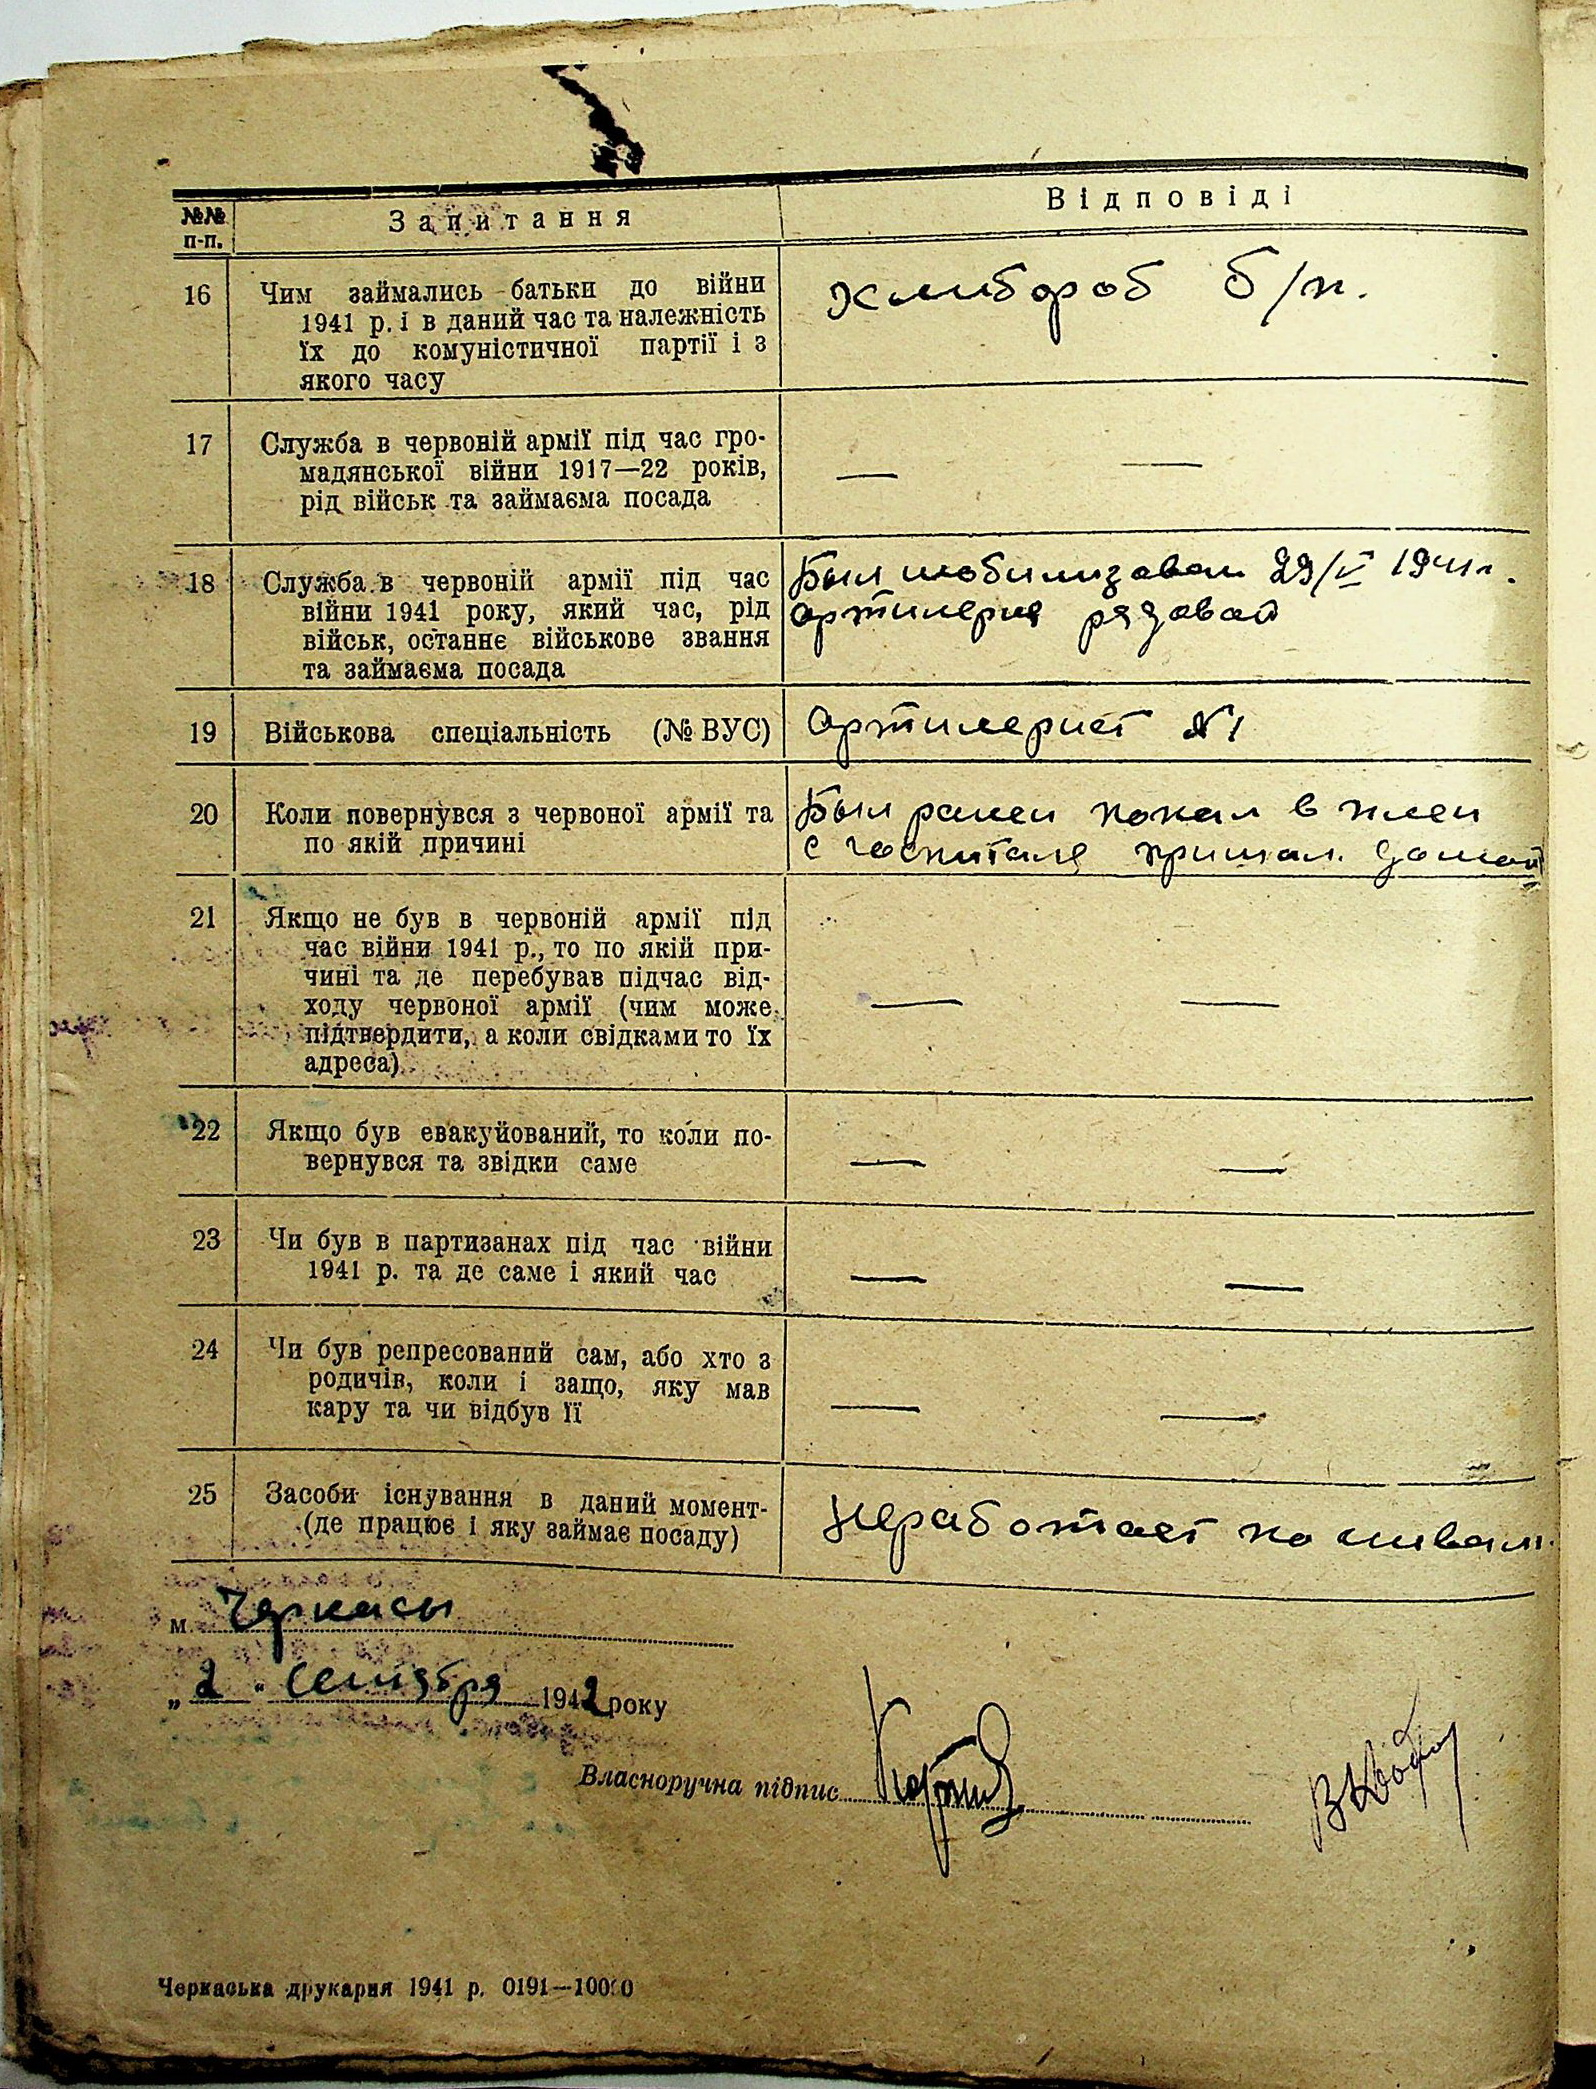 №№ п-п.
Запитання
Відповіді
16
Чим займались батьки до війни
1941 р. і в даний час та належність
їх до комуністичної партії і з
якого часу
Хлибороб б/п.
17
Служба в червоній армії під час гро-
мадянської війни 1917—22 років,
рід військ та займаєма посада
— —
18
Служба в червоній армії під час
війни 1941 року, який час, рід
військ, останнє військове звання
та займаєма посада
Был мобилизован 1941 г.
Артилерия рядовой
19
Військова спеціальність (№ ВУС)
Артилерист №1
20
Коли повернувся з червоної армії та
по якій причині
Был ранен попал в плен
с госпиталя пришол домой
21
Якщо не був в червоній армії під
час війни 1941 р., то по якій при-
чині та де перебував підчас від-
ходу червоної армії (чим може
підтвердити, а коли свідками то їх
адреса)
— —
22
Якщо був евакуйований, то коли по-
вернувся та звідки саме
— —
23
Чи був в партизанах під час війни
1941 р. та де саме і який час
— —
24
Чи був репресований сам, або хто з
родичів, коли і защо, яку мав
кару та чи відбув її
— —
25
Засоби існування в даний момент-
(де працює і яку займає посаду)
Неработает по
м. Черкасы
„2" сентября 1942 року
Власноручна підпис
Черкаська друкарня 1941 р. 0191—10000